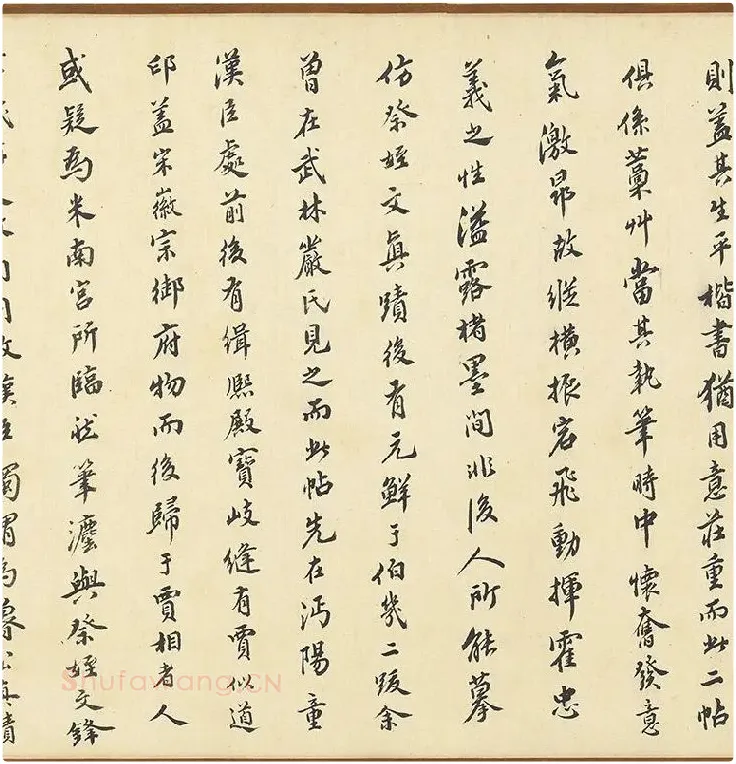 則蓋其生平楷書猶用意莊重而此二帖
俱係藁艸當其執筆時中懷奮發意
氣激昂故縱橫振宕飛動揮霍忠
義之性溢露楮墨間非後人所能摹
仿祭姪文眞蹟後有元鮮于伯幾二跋余
曽在武林嚴氏見之而此帖先在沔陽童
漢臣處前後有緝熙殿寶岐縫有賈似道
印蓋宋徽宗御府物而後歸于賈相者人
或疑爲米南宮所臨然筆灋與祭姪文鋒
Shufawang.CN